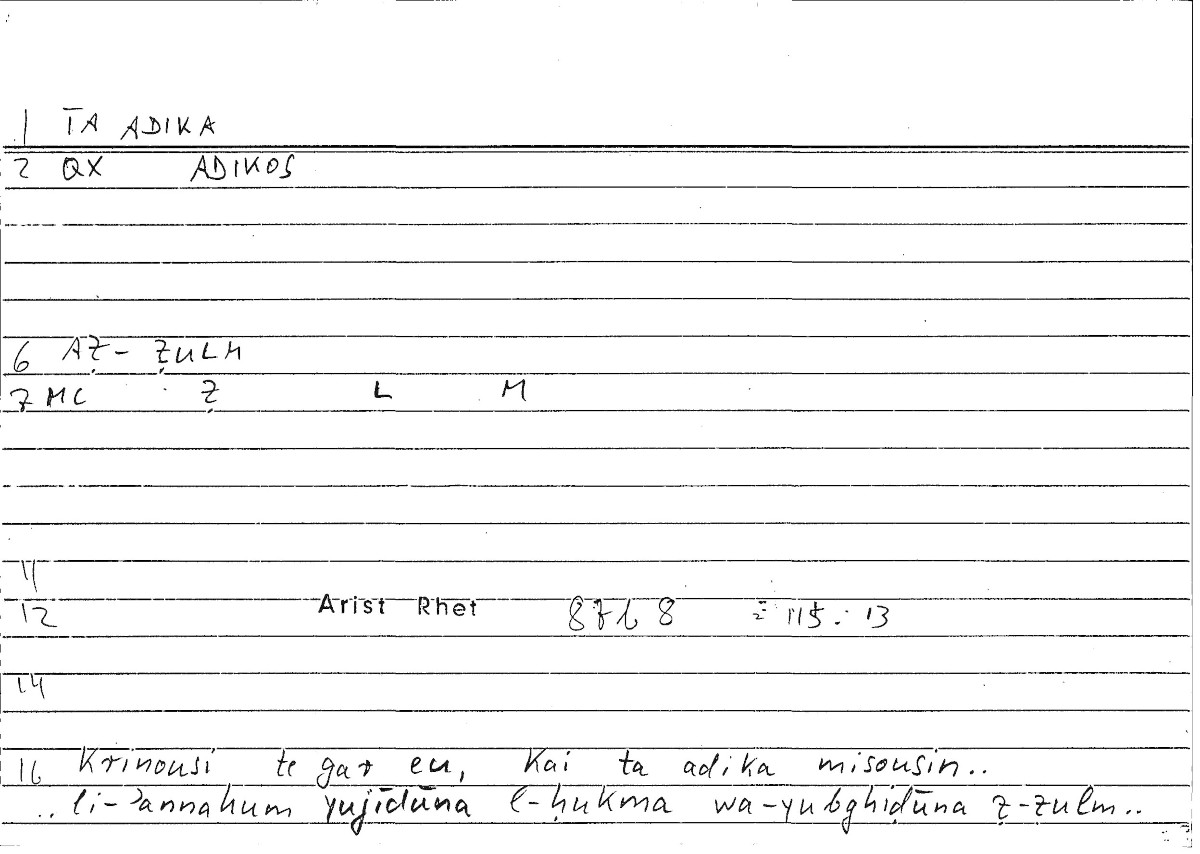 1 TA ADIKA
2 QX ADIKOS
6 AẒ-ẒULM
7 MC Ẓ L M
11
12 Arist Rhet 87b 8 = 115.13
14
16 Krinousi te gar eu, kai ta adika misousin..
..li-ʾannahum yujīdūna l-ḥukma wa-yubghiḍūna ẓ-ẓulm..